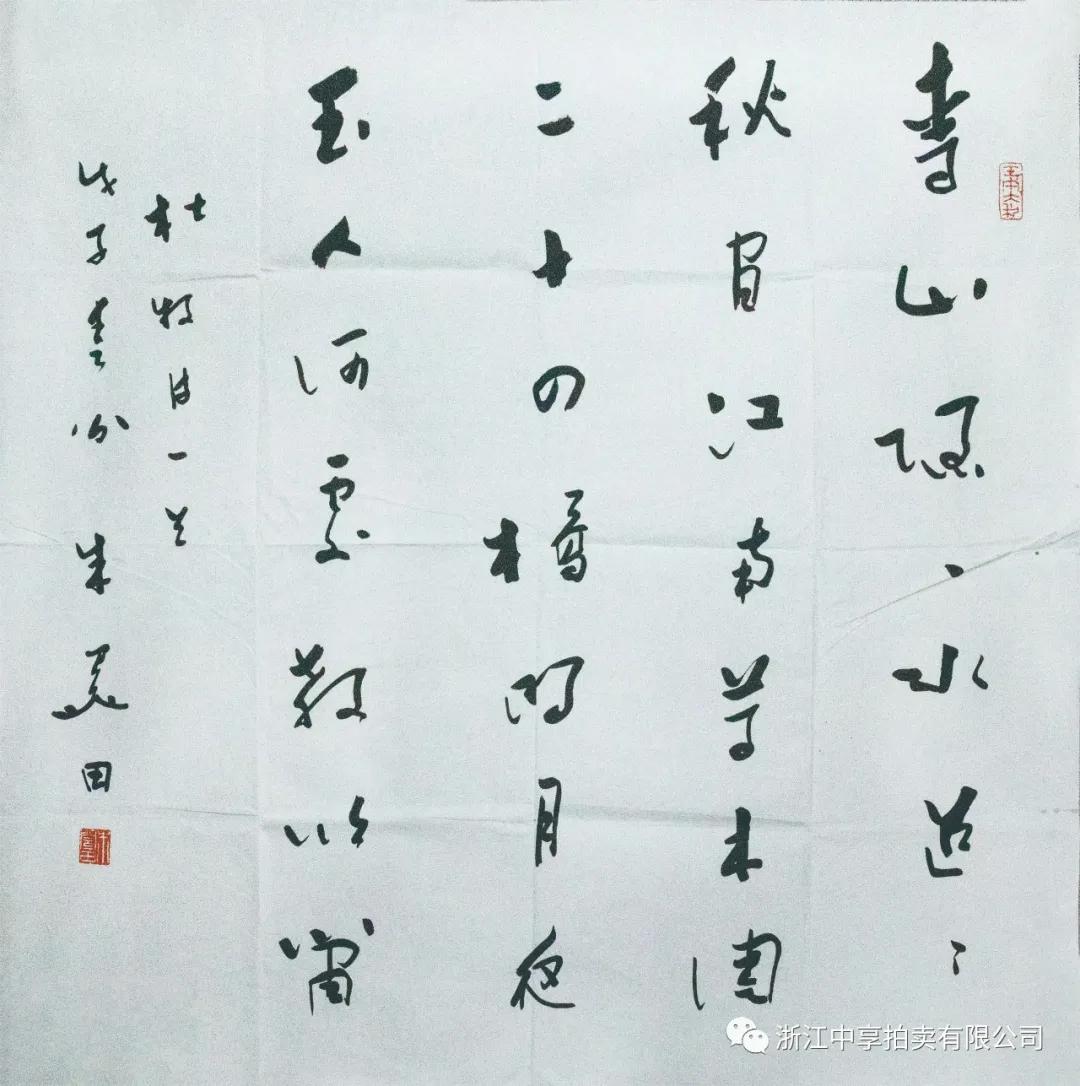 青山隱隱水迢迢
秋盡江南草木凋
二十四橋明月夜
玉人何處教吹簫
杜牧詩一首
戊子春分 朱关田
浙江中享拍卖有限公司